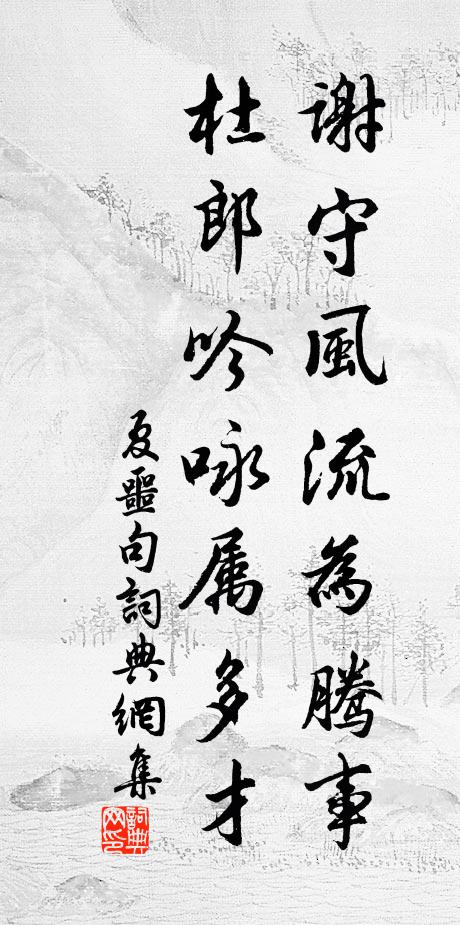 謝守風流為騰事
杜郎吟咏属多才
夏噩句詞典網集
詞典网印